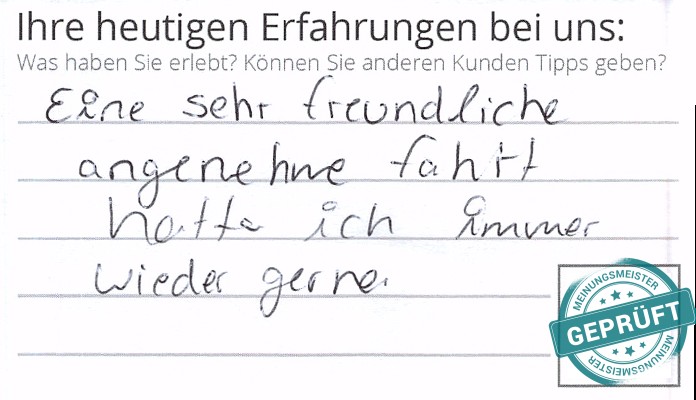 Ihre heutigen Erfahrungen bei uns:
Was haben Sie erlebt? Können Sie anderen Kunden Tipps geben?
Eine sehr freundliche
angenehme fahrt
hatte ich immer
wieder gerne.
MEINUNGSMEISTER
GEPRÜFT
MEINUNGSMEISTER